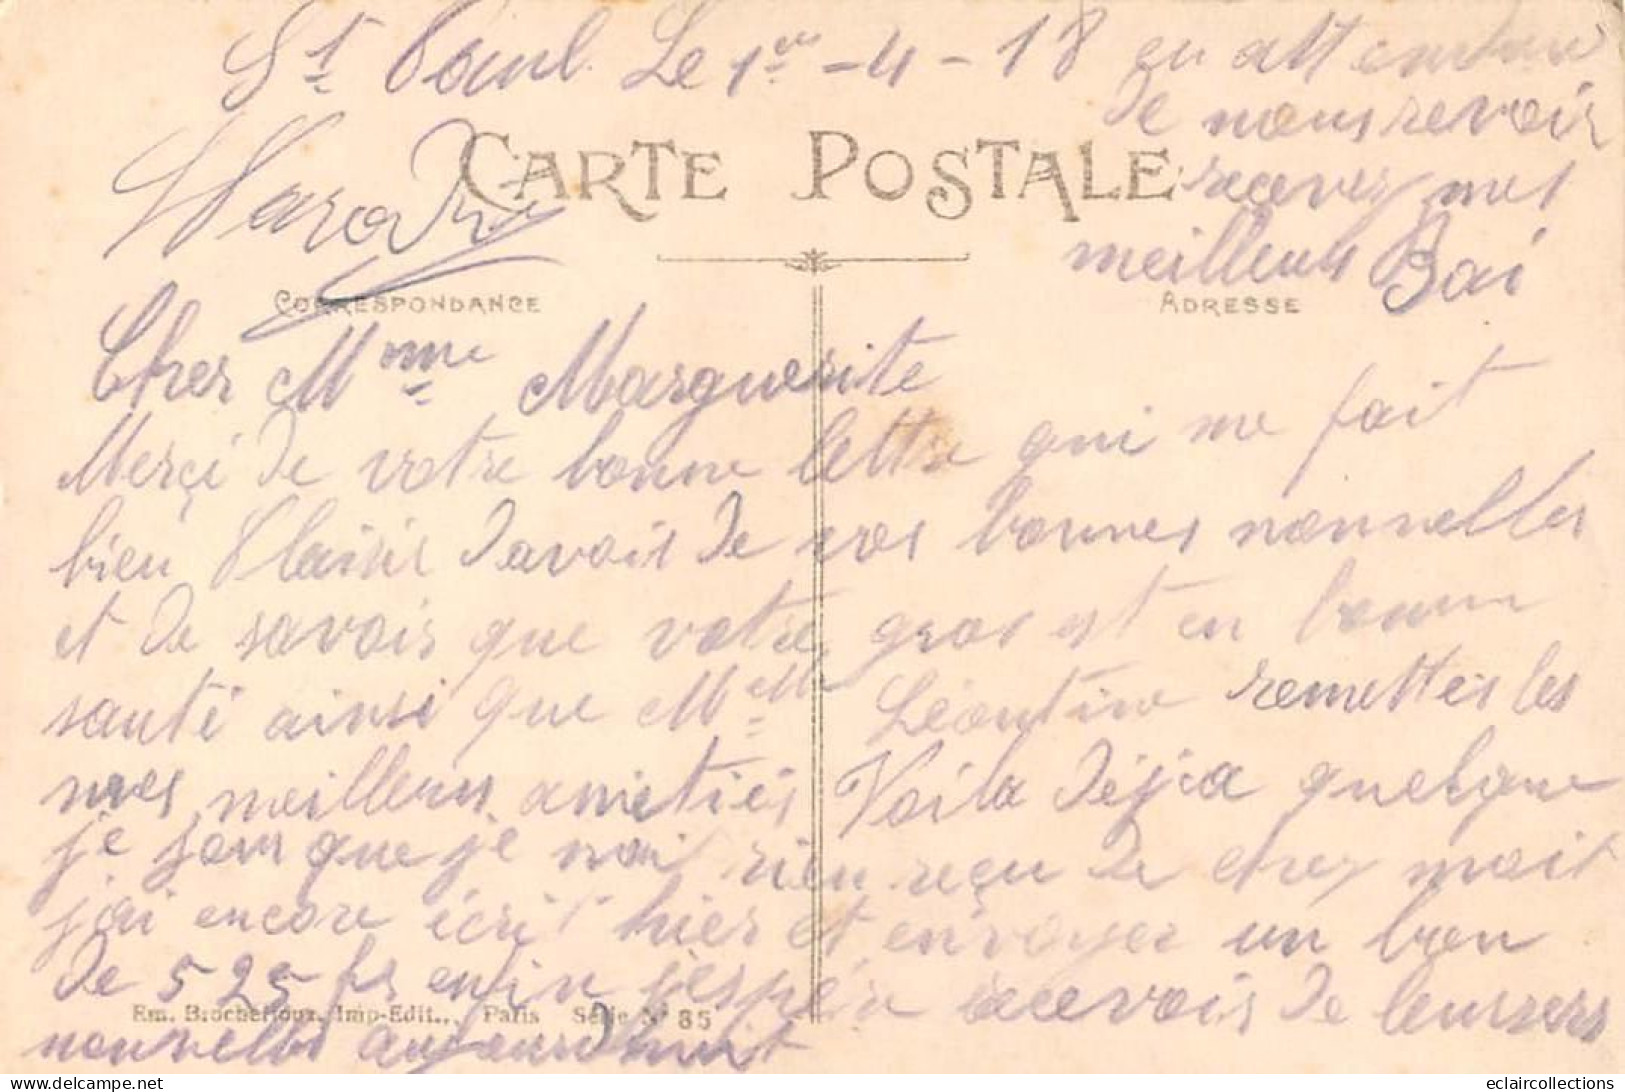 St Paul. Le 1er - 4 - 18
CARTE POSTALE
CORRESPONDANCE
ADRESSE
Cher Mme Marguerite
Merçi de votre bonne lettre qui me fait
bien Plaisir davoir de vos bonnes nouvelles
et de savoir que votre gros est en bonne
santé ainsi que Melle Léontine remetteis les
mes meilleurs ametiés Voila déjia quelque
je jour que je nai rien reçu de chez moit
jai encore écrit hier et envoyer un bon
de 525 frs enfin jespér recevoir de leurs
nouvelles aujourdhuit
en attendant
de nous revoir
recever mes
meilleurs Bai
Em. Brocherioux, Imp-Edit., Paris Série N° 85
eclaircollections